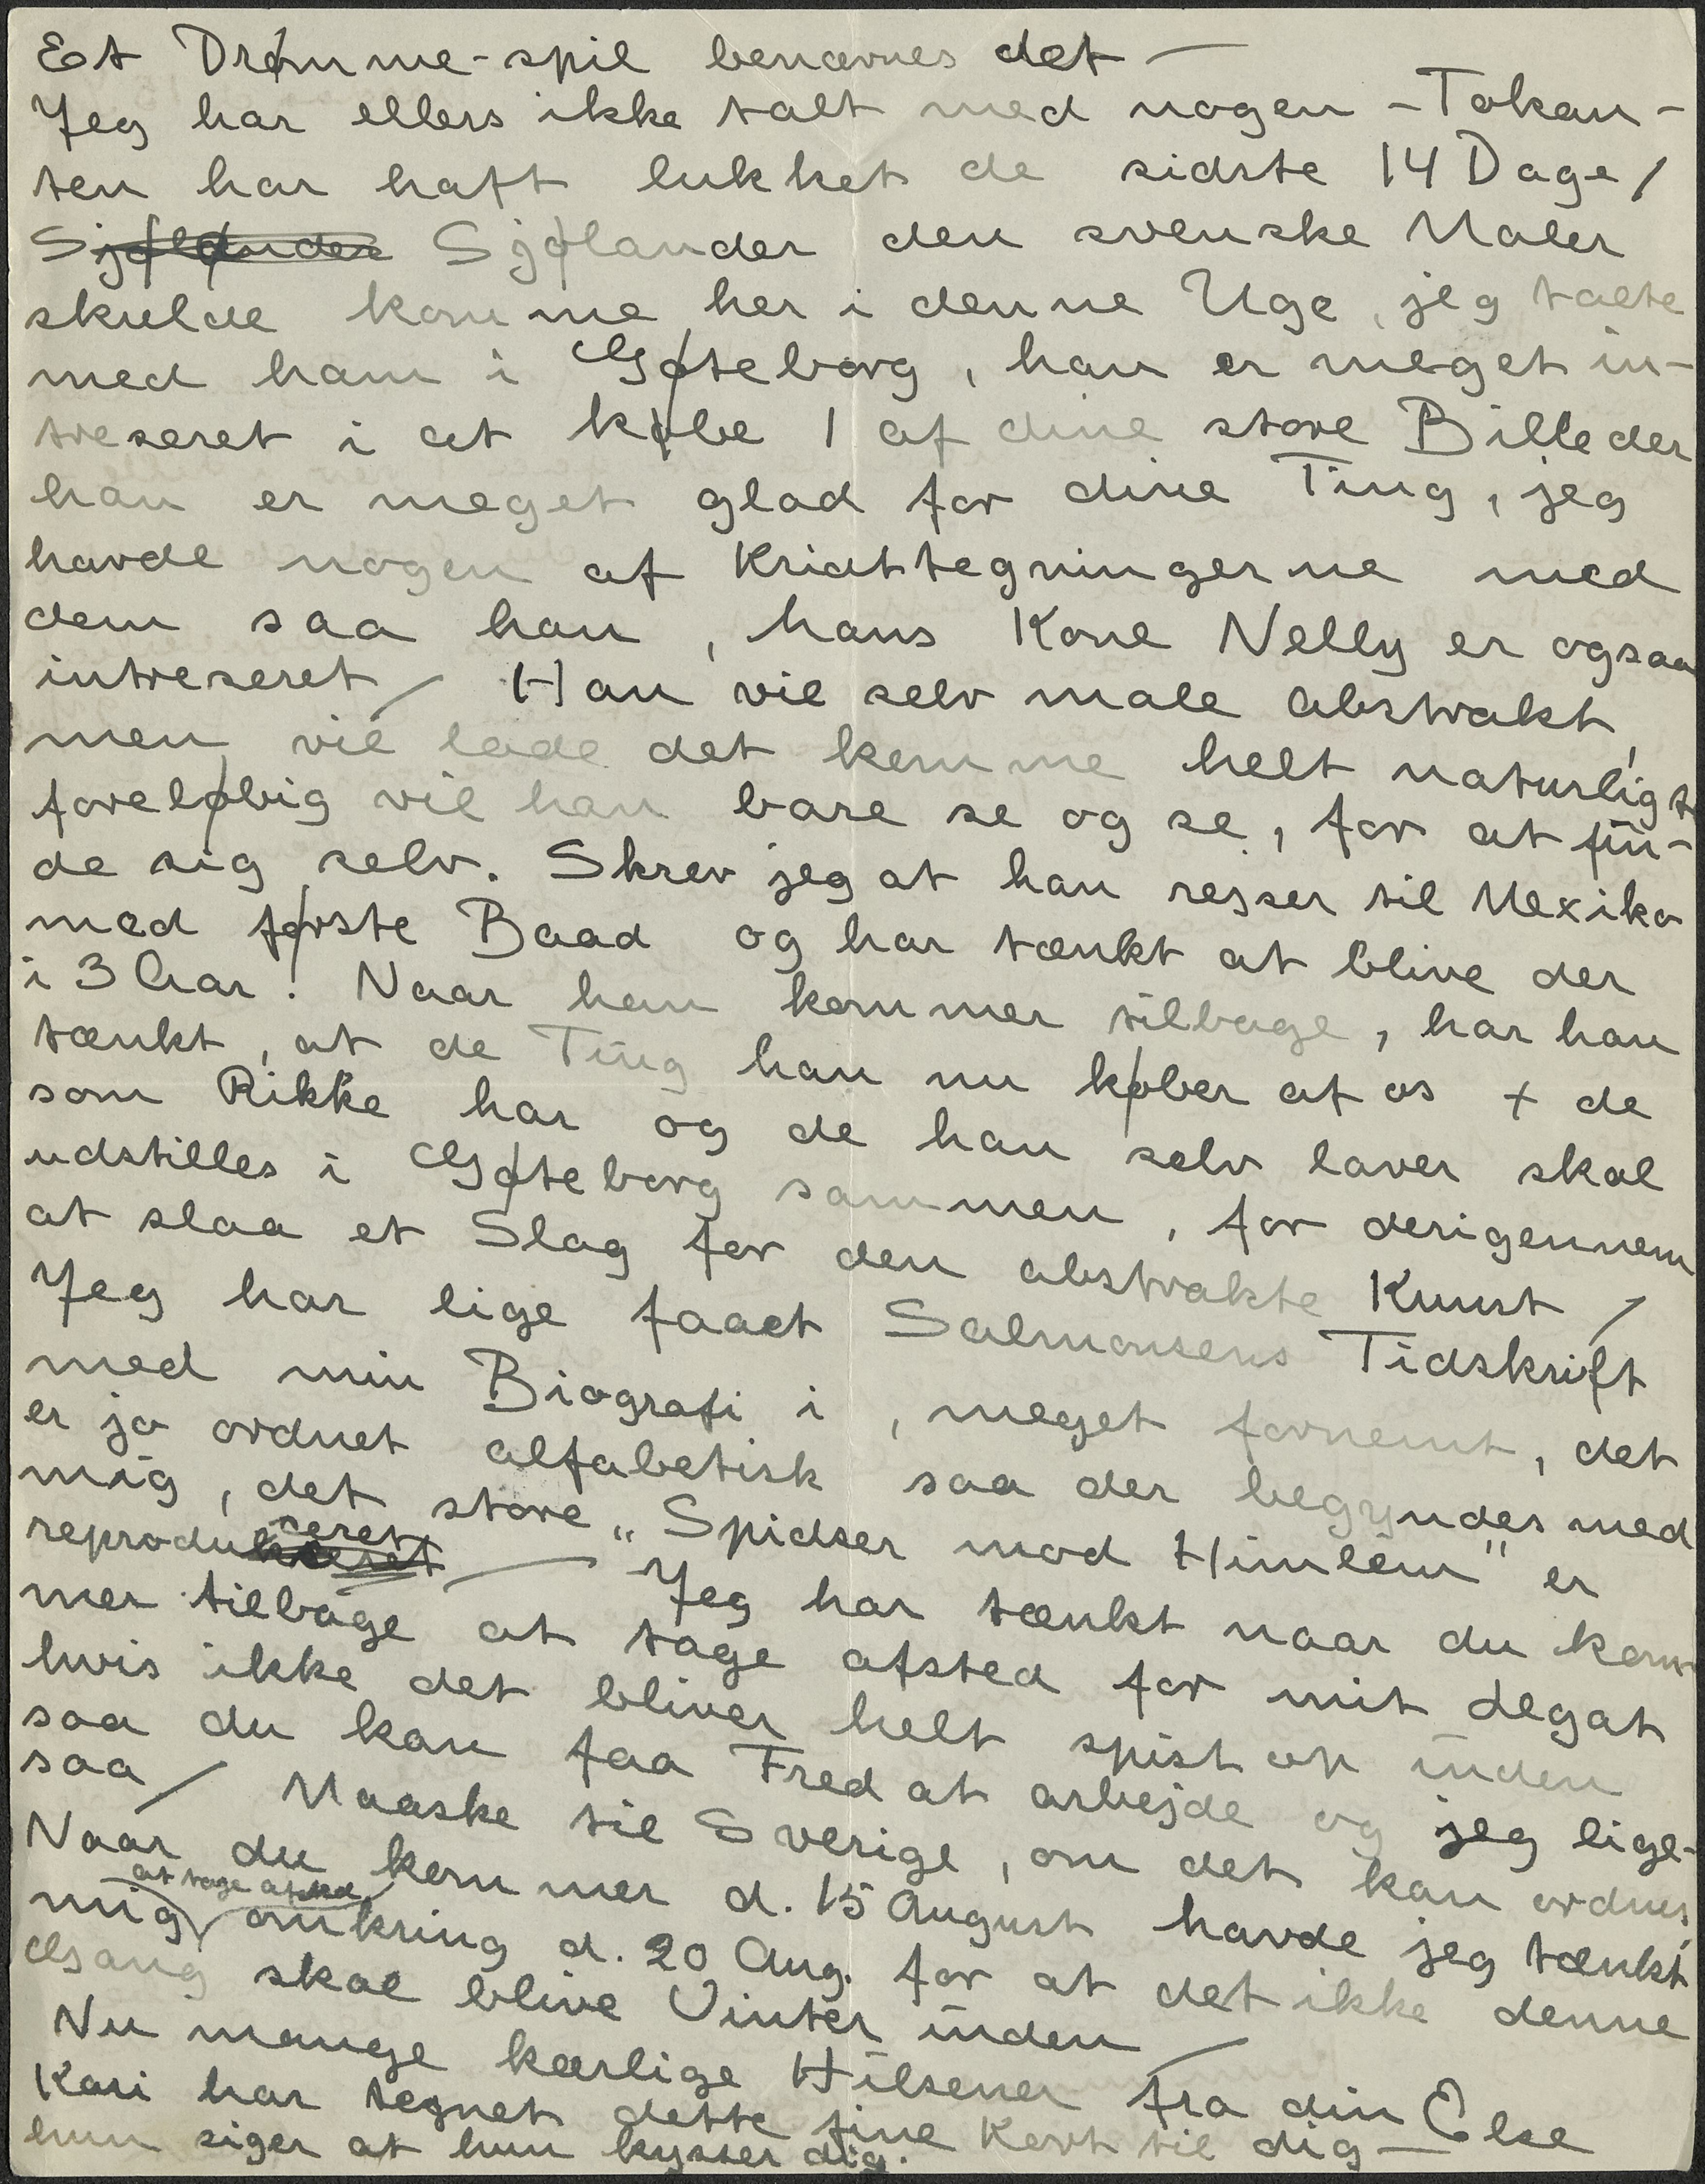 Et Drømme-spil benævnes det —
Jeg har ellers ikke talt med nogen - Tokan-
ten har haft lukket de sidste 14 Dage /
Sjølander Sjølander den svenske Maler
skulde komme her i denne Uge, jeg talte
med ham i Gøteborg, han er meget in-
treseret i at købe 1 af dine store Billeder
han er meget glad for dine Ting, jeg
havde nogen af Kridttegningerne med
dem saa han, hans Kone Nelly er ogsaa
intreseret / Han vil selv male abstrakt,
men vil lade det komme helt naturligt
foreløbig vil han bare se og se, for at fin-
de sig selv. Skrev jeg at han resser til Mexiko
med første Baad og har tænkt at blive der
i 3 Aar! Naar han kommer tilbage, har han
tænkt, at de Ting han nu køber af os + de
som Rikke har og de han selv laver skal
udstilles i Gøteborg sammen, for derigennem
at slaa et Slag for den abstrakte Kunst /
Jeg har lige faaet Salmonsens Tidskrift
med min Biografi i, meget fornemt, det
er jo ordnet alfabetisk saa der begyndes med
mig, det store „Spidser mod Himlen" er
reproduceret — Jeg har tænkt naar du kom-
mer tilbage at tage afsted for mit Legat
hvis ikke det bliver helt spist op inden
saa du kan faa Fred at arbejde og jeg lige-
saa / Maaske til Sverige, om det kan ordnes,
Naar du kommer d. 15 August havde jeg tænkt
mig at tage afsted omkring d. 20 Aug. for at det ikke denne
Gang skal blive Vinter inden —
Nu mange kærlige Hilsener fra din Else
Kari har tegnet dette fine Kort til dig —
hun siger at hun kysser dig.